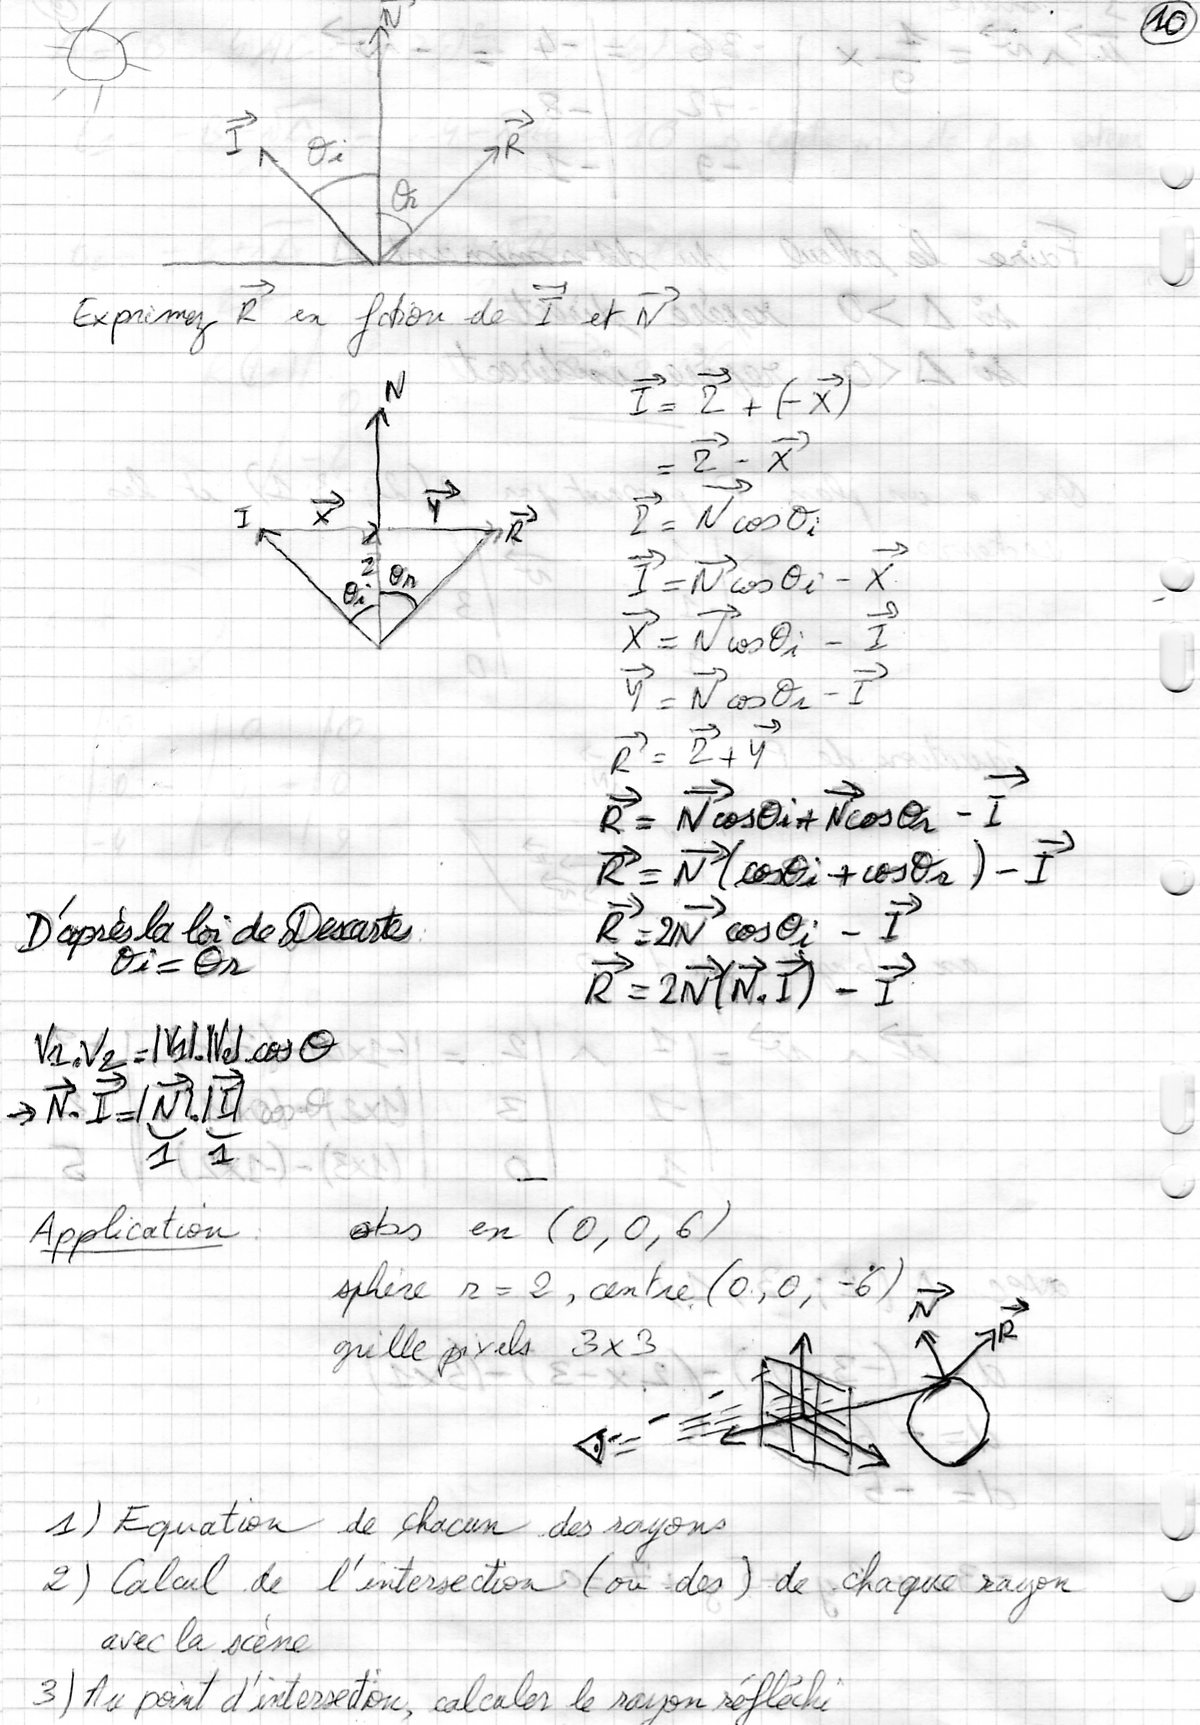 10
N
I θi θr R
Exprimez R en fction de I et N
N
I X Y R
Z
θi θr
I = Z + (-X)
= Z - X
Z = N cosθi
I = N cosθi - X
X = N cosθi - I
Y = N cosθr - I
R = Z + Y
R = N cosθi + N cosθr - I
R = N (cosθi + cosθr) - I
D'après la loi de Descartes:
θi = θr
R = 2N cosθi - I
R = 2N(N.I) - I
V1.V2 = |V1|.|V2|.cosθ
→ N.I = |N|.|I|
1 1
Application: obs en (0, 0, 6)
sphère r = 2, centre (0, 0, -6)
grille pixels 3x3
N
R
1) Equation de chacun des rayons
2) Calcul de l'intersection (ou des) de chaque rayon
avec la scène
3) Au point d'intersection, calculer le rayon réfléchi